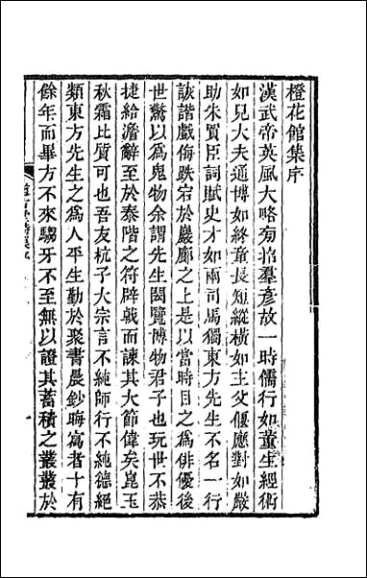 橙花館集序
漢武帝英風大略甸招羣彥故一時儒行如董生經術
如兒大夫通博如終童長短縱橫如主父偃應對如嚴
助朱買臣詞賦史才如兩司馬獨東方先生不名一行
詼諧戲侮跌宕於巖廊之上是以當時目之為俳優後
世驚以為鬼物余謂先生閎覽博物君子也玩世不恭
捷給澹辭至於泰階之符辟戟而諫其大節偉矣崑玉
秋霜比質可也吾友杭子大宗言不純師行不純德絕
類東方先生之為人平生勤於聚書晨鈔暝寫者十有
餘年而畢方不來騶牙不至無以證其蓄積之叢叢於
一